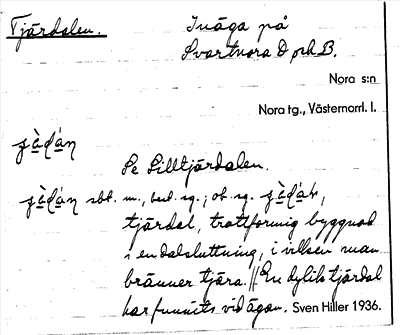 Tjärdalen.
Inäga på
Svartnora D och B.
Nora s:n
Nora tg., Västernorrl. l.
Se Lilltjärdalen.
sbt. m., best. sg.; ob. sg.
tjärdal, trattformig byggnad
i en dalsluttning, i vilken man
bränner tjära. // En dylik tjärdal
har funnits vid ägan. Sven Hiller 1936.